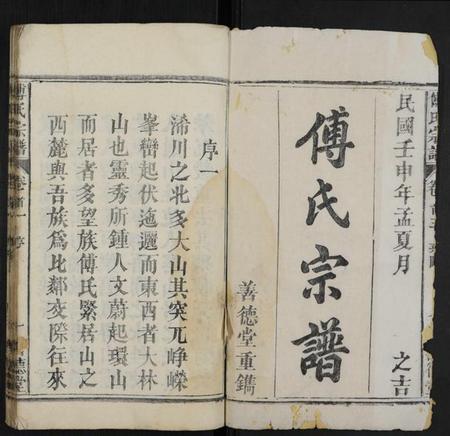 民國壬申年孟夏月
之吉
傅氏宗譜
善德堂重鐫
序一
浠川之北多大山其突兀崢嶸
峯巒起伏迤邐而東西者大林
山也靈秀所鍾人文蔚起環山
而居者多望族傅氏繫居山之
西麓與吾族爲比鄰交際往來
傅氏宗譜
卷首一
序
德堂